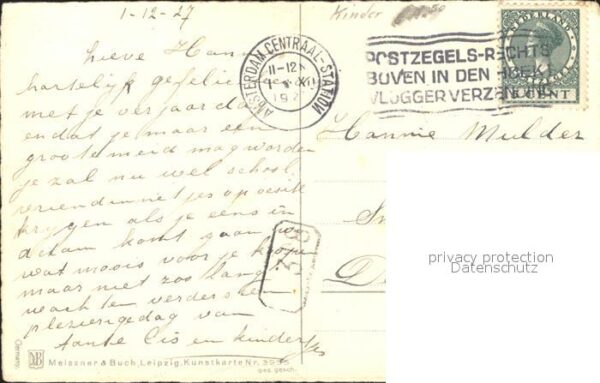 1-12-27
Kinder
lieve Hannie
hartelijk gefeliciteerd
met je verjaardag
en dat je maar een
groote meid mag worden
je zal nu wel school
vriendinnetjes op visite
krijgen als je eens in
adam komt gaan we
wat moois voor je koopen
maar niet zoo lang
wachten verder een
pleziergedag van
tante Cis en kindertjes
AMSTERDAM CENTRAAL-STATION
11-12
POSTZEGELS-RECHTS
BOVEN IN DEN HOEK
VLUGGER VERZENDING
NEDERLAND
CENT
Hannie Mulder
privacy protection
Datenschutz
Germany
MB
Meissner & Buch, Leipzig. Kunstkarte Nr.
ges. gesch.